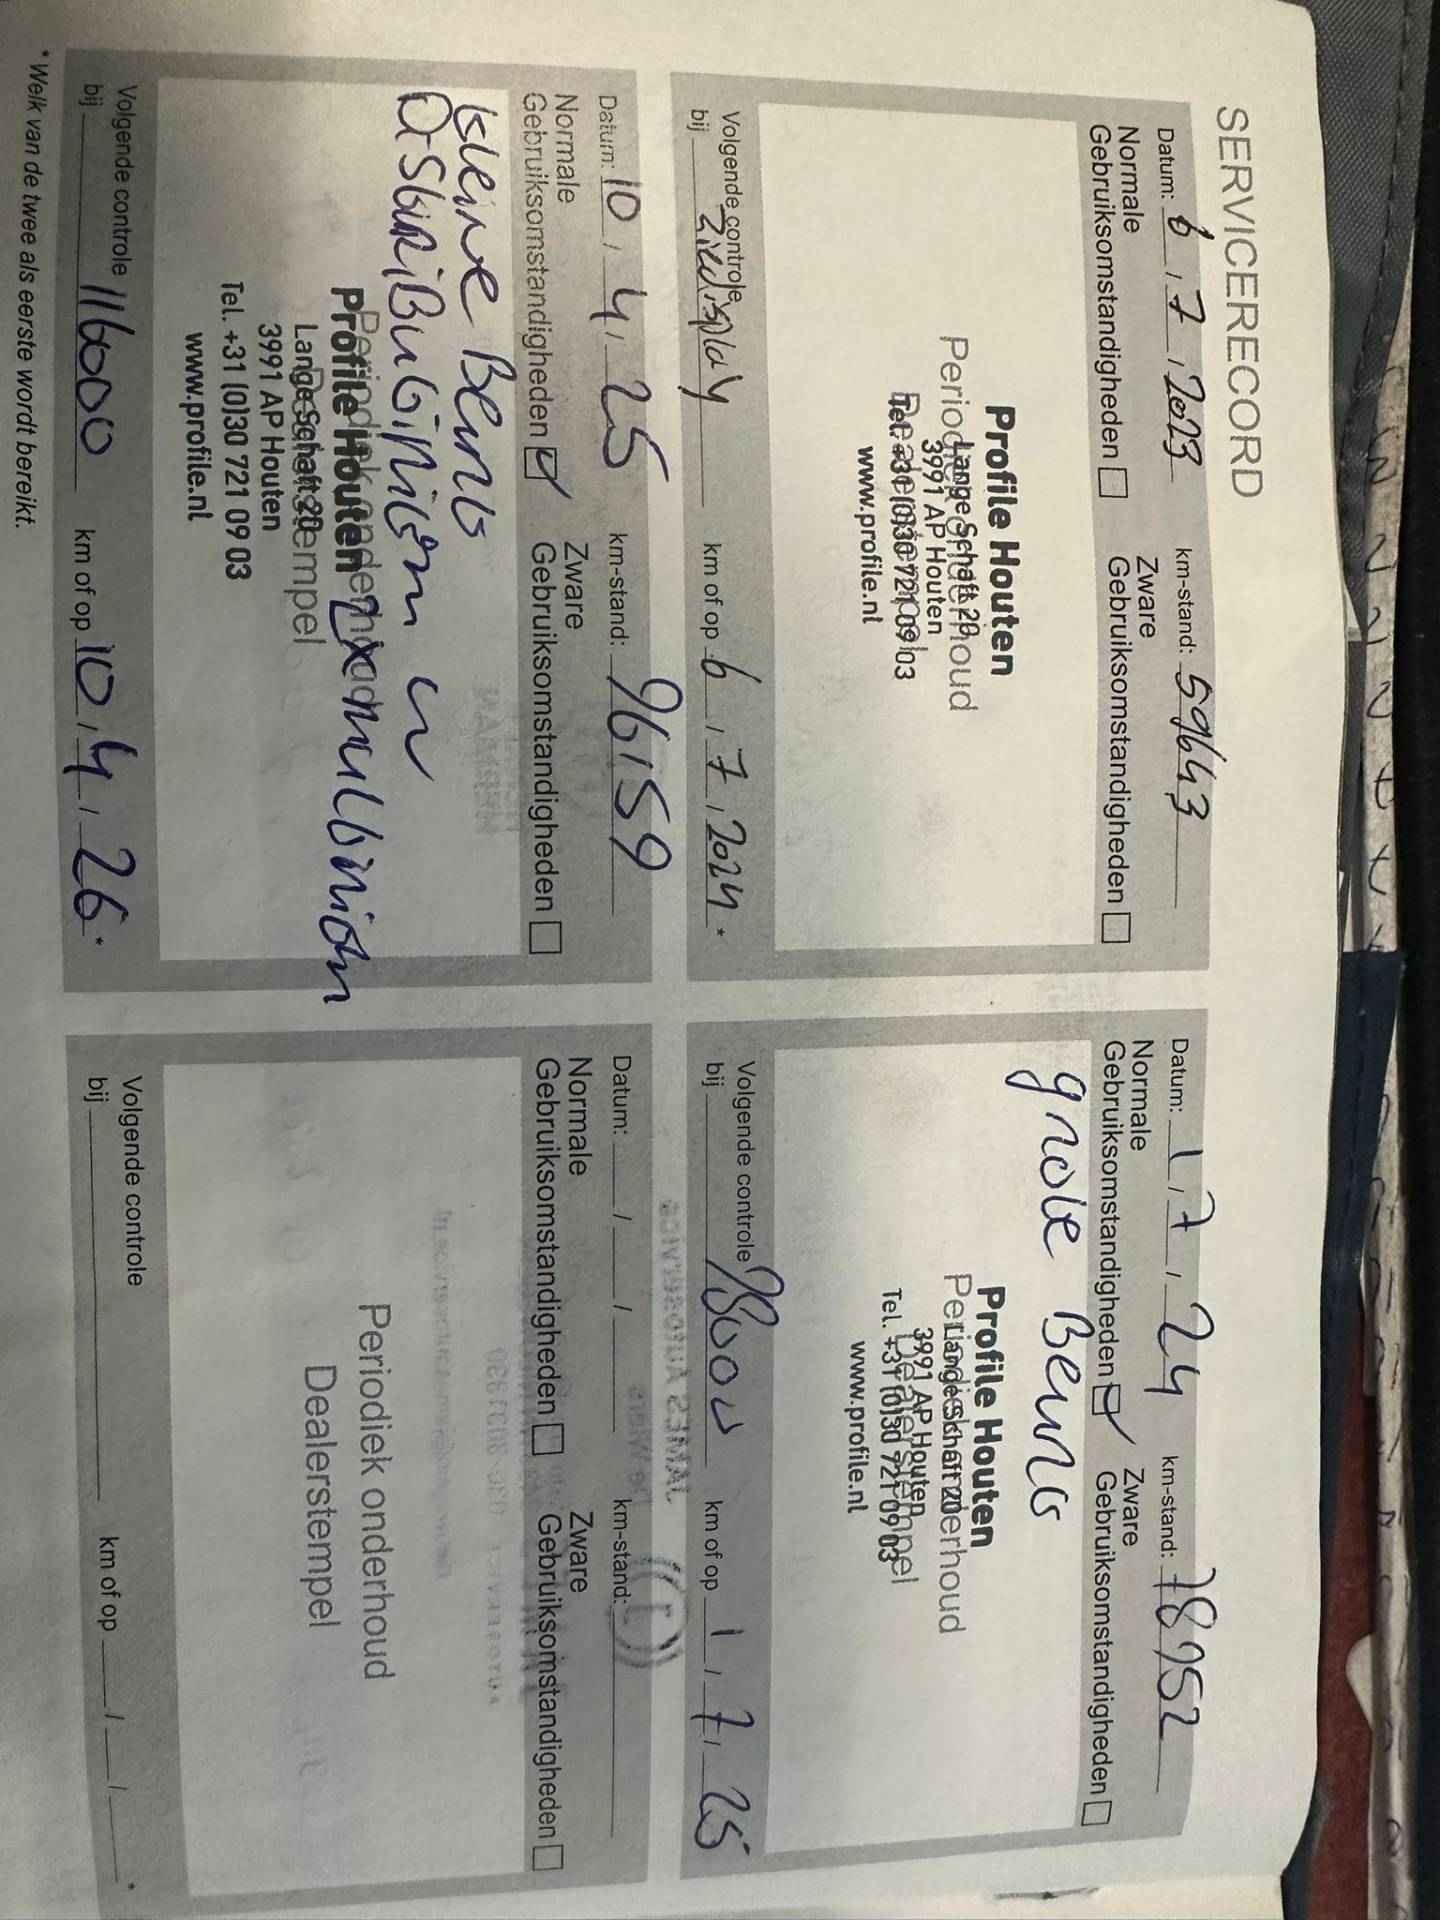 SERVICERECORD
Datum: 6 / 7 / 2023 km-stand: 59643
Normale Gebruiksomstandigheden Zware Gebruiksomstandigheden
Periodiek onderhoud
Dealerstempel
Profile Houten
Lange Schaft 20
3991 AP Houten
Tel. +31 (0)30 721 09 03
www.profile.nl
Volgende controle
bij Zie display km of op 6 / 7 / 2024 *
Datum: 1 / 7 / 24 km-stand: 78952
Normale Gebruiksomstandigheden Zware Gebruiksomstandigheden
grote Beurt
Periodiek onderhoud
Dealerstempel
Profile Houten
Lange Schaft 20
3991 AP Houten
Tel. +31 (0)30 721 09 03
www.profile.nl
Volgende controle
bij 98000 km of op 1 / 7 / 25
Datum: 10 / 4 / 25 km-stand: 96159
Normale Gebruiksomstandigheden Zware Gebruiksomstandigheden
kleine Beurt
Periodiek onderhoud
Dealerstempel
Profile Houten
Lange Schaft 20
3991 AP Houten
Tel. +31 (0)30 721 09 03
www.profile.nl
Volgende controle
bij 116000 km of op 10 / 4 / 26 *
Datum: / / km-stand:
Normale Gebruiksomstandigheden Zware Gebruiksomstandigheden
Periodiek onderhoud
Dealerstempel
Volgende controle
bij km of op / / *
* Welk van de twee als eerste wordt bereikt.